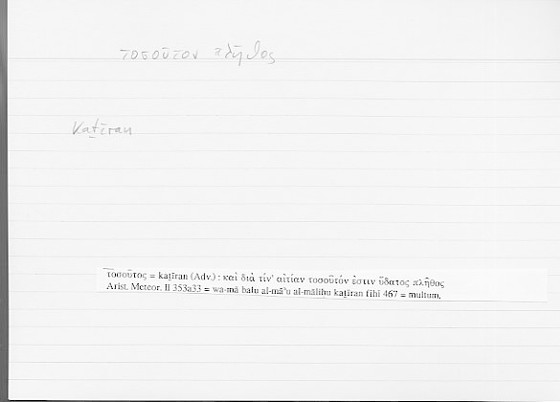 τοσοῦτον πλῆθος
kaṯīran
τοσοῦτος = kaṯīran (Adv.) : καὶ διὰ τίν' αἰτίαν τοσοῦτόν ἐστιν ὕδατος πλῆθος
Arist. Meteor. II 353a33 = wa-mā bālu al-mā'u al-māliḥu kaṯīran fīhi 467 = multum,